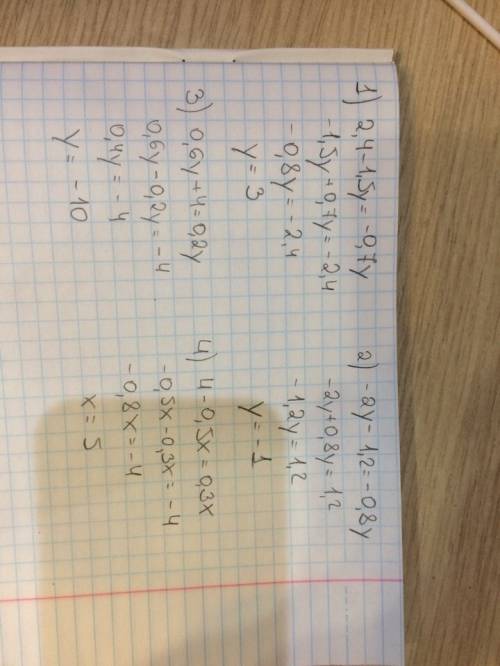 1) 2,4-1,5y=-0,7y
-1,5y+0,7y=-2,4
-0,8y=-2,4
y=3
2) -2y-1,2=-0,8y
-2y+0,8y=1,2
-1,2y=1,2
y=-1
3) 0,6y+4=0,2y
0,6y-0,2y=-4
0,4y=-4
y=-10
4) 4-0,5x=0,3x
-0,5x-0,3x=-4
-0,8x=-4
x=5